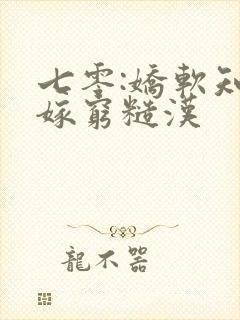 七零:嬌軟知
嫁窮糙漢
龍不器